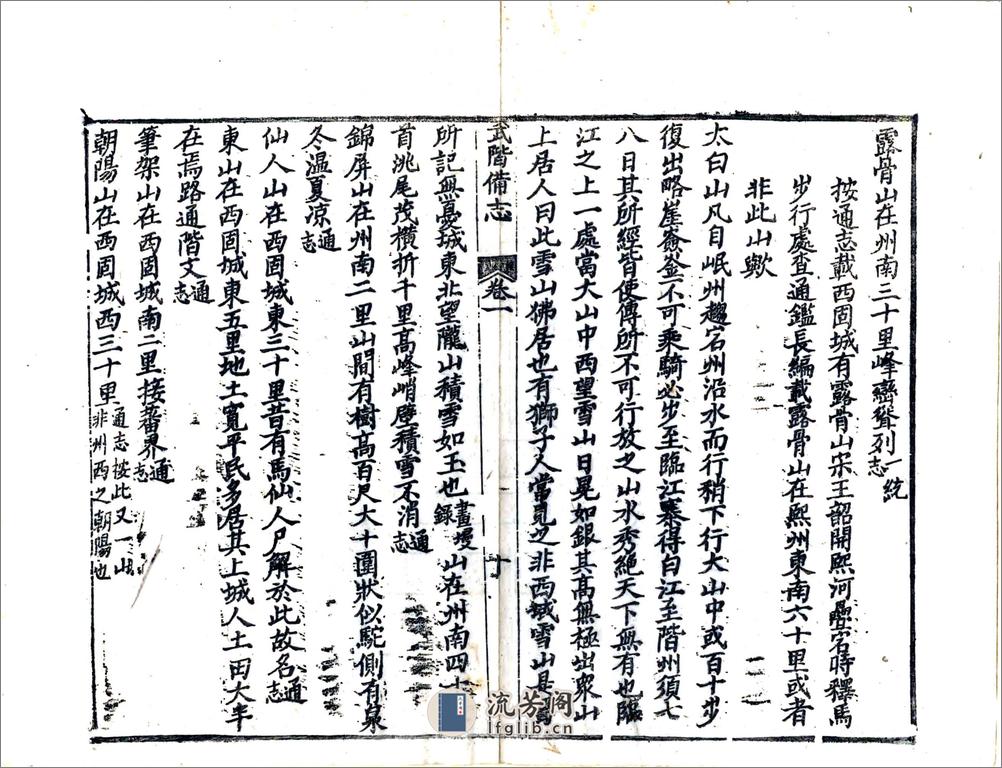 露骨山在州南三十里峰巒聳列一統志
按通志載西固城有露骨山宋王韶開熙河疊宕時釋馬
步行處查通鑑長編載露骨山在熙州東南六十里或者
非此山歟
太白山凡自岷州趨宕州沿水而行稍下行大山中或百十步
復出略崖嶔崟不可乘騎必步至臨江寨得白江至階州須七
八日其所經皆使傳所不可行放之山水秀絶天下無有也臨
江之上一處當大山中西望雪山日晃如銀其高無極出衆山
上居人曰此雪山狒居也有獅子人常見之非西域雪山是
武階備志 卷一 十
所記無憂城東北望隴山積雪如玉也畫墁録 山在州南四十
首洮尾茂横折千里高峰峭壁積雪不消通志
錦屏山在州南二里山間有樹高百尺大十圍狀似駝側有泉
冬温夏凉通志
仙人山在西固城東三十里昔有馬仙人尸解於此故名通志
東山在西固城東五里地土寬平民多居其上城人土田大半
在焉路通階文通志
筆架山在西固城南二里接蕃界通志
朝陽山在西固城西三十里通志按此又一山非州西之朝陽也
流芳阁
lfglib.cn